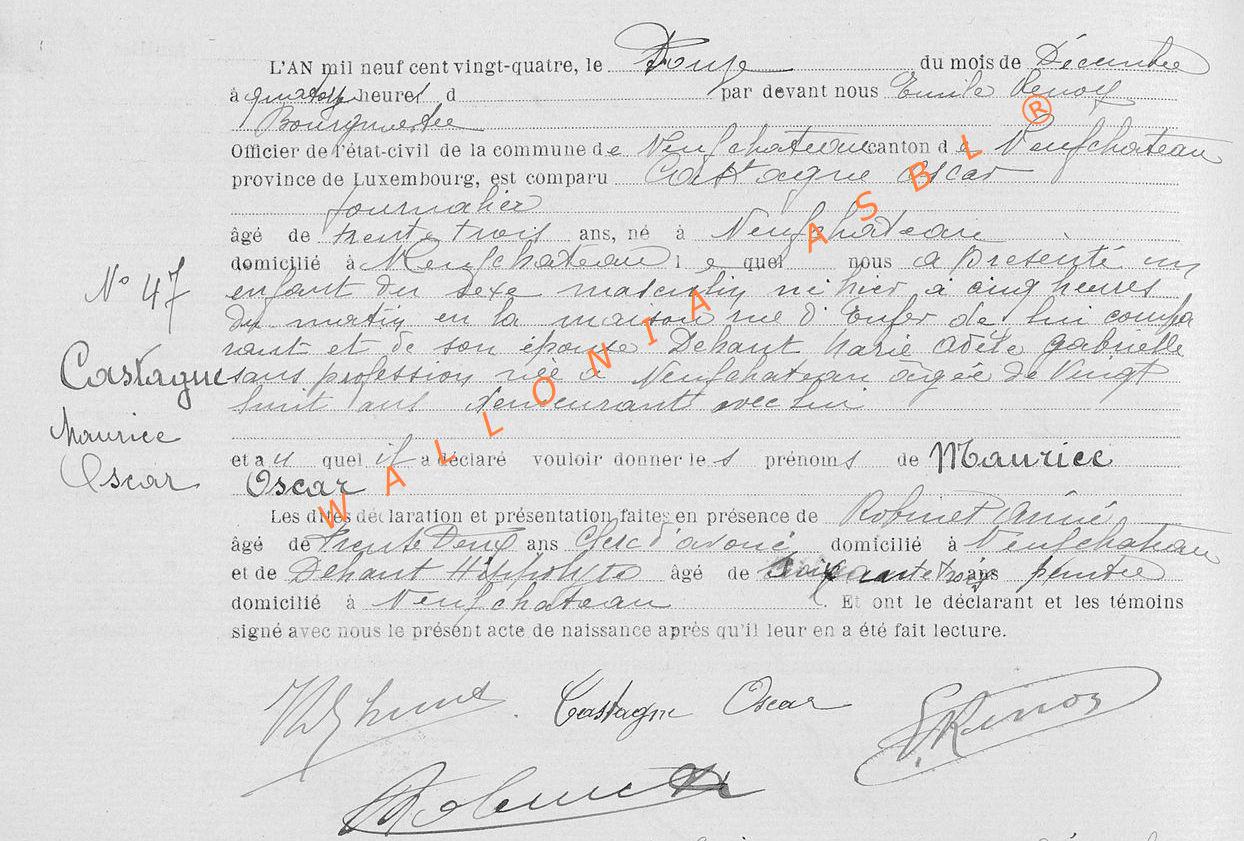 L'AN mil neuf cent vingt-quatre, le Douze du mois de Décembre
à quatorze heures d par devant nous Emile Renoy
Bourgmestre
Officier de l'état-civil de la commune de Neufchateau canton de Neufchateau
province de Luxembourg, est comparu Castagne Oscar
Journalier
âgé de trente trois ans, né à Neufchateau
domicilié à Neufchateau le quel nous a présenté un
N° 47
enfant du sexe masculin né hier à cinq heures
du matin en la maison rue d'Enfer de lui compa
rant et de son épouse Dehant Marie Adèle gabrielle
Castagne
sans profession née à Neufchateau âgée de Vingt
huit ans demeurant avec lui
Maurice
et au quel il a déclaré vouloir donner les prénoms de Maurice
Oscar
Oscar
Les dites déclaration et présentation faites en présence de Robinet Aimé
âgé de trente Deux ans Clerc d'avoué domicilié à Neufchateau
et de Dehant Hippolyte âgé de soixante trois ans peintre
domicilié à Neufchateau. Et ont le déclarant et les témoins
signé avec nous le présent acte de naissance après qu'il leur en a été fait lecture.
WALLONIA ASBL ®
Castagne Oscar